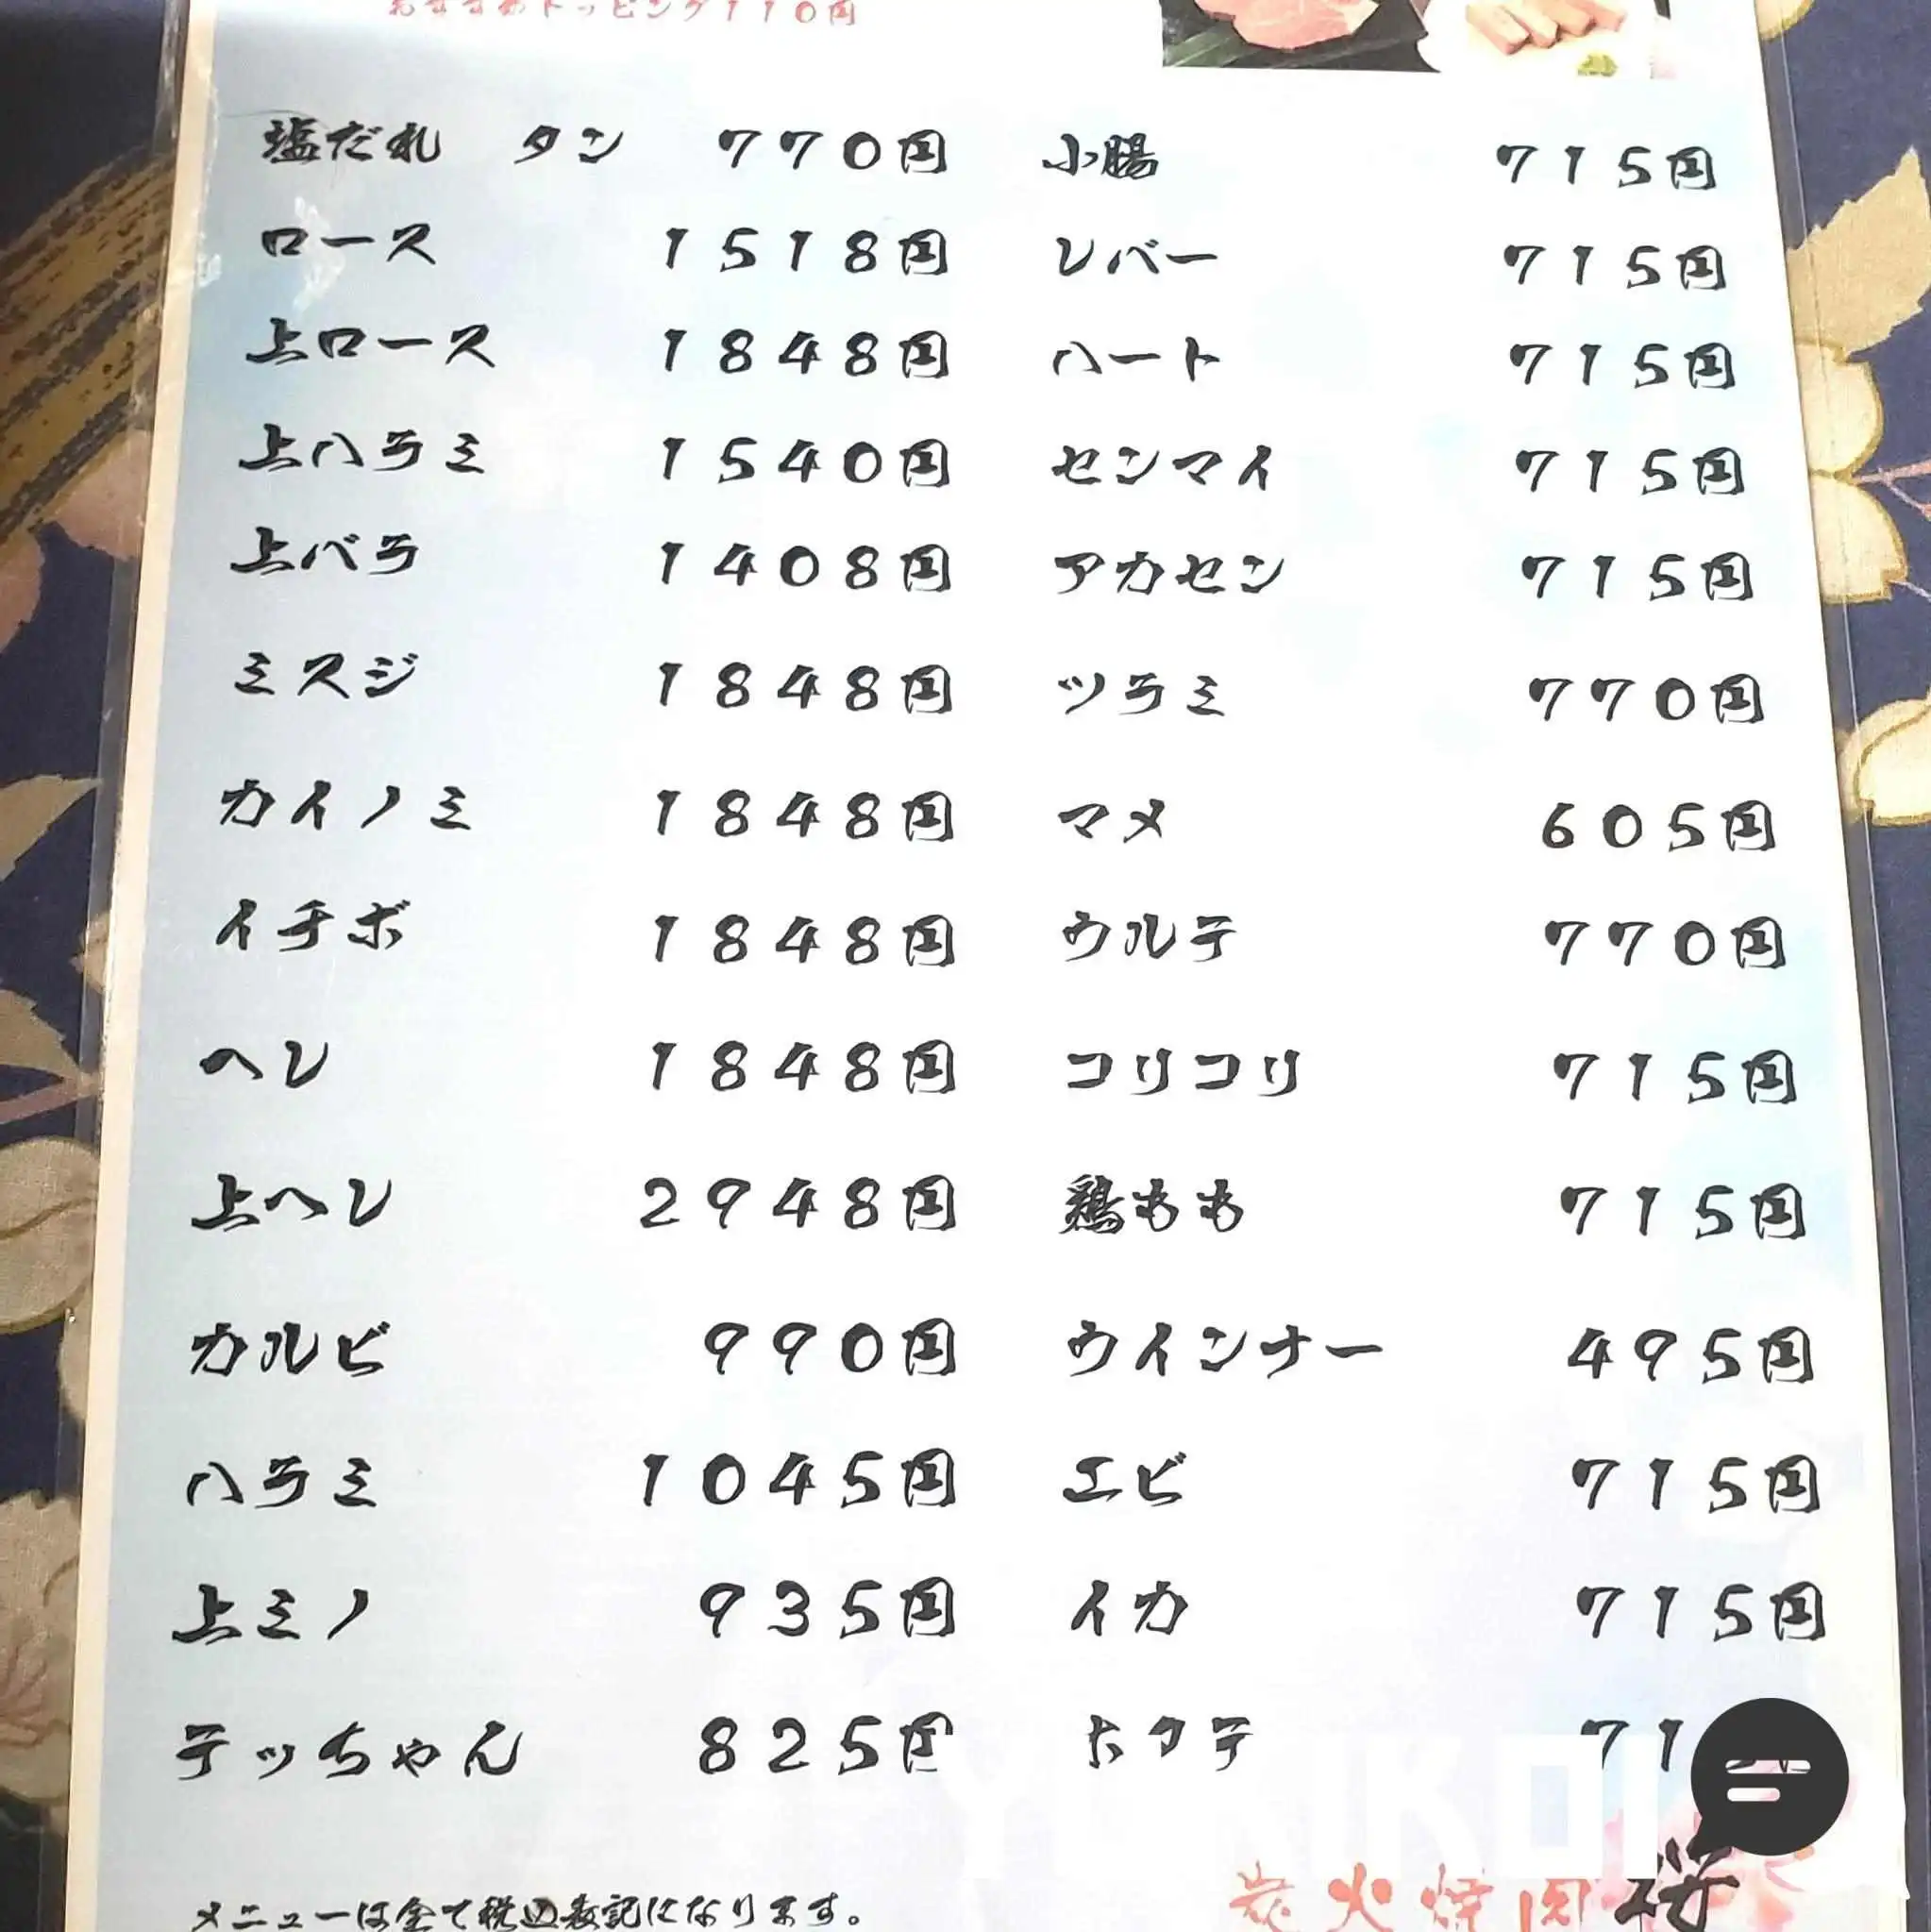 おすすめトッピング110円
塩だれ タン 770円
ロース 1518円
上ロース 1848円
上ハラミ 1540円
上バラ 1408円
ミスジ 1848円
カイノミ 1848円
イチボ 1848円
ヘレ 1848円
上ヘレ 2948円
カルビ 990円
ハラミ 1045円
上ミノ 935円
テッちゃん 825円
小腸 715円
レバー 715円
ハート 715円
センマイ 715円
アカセン 715円
ツラミ 770円
マメ 605円
ウルテ 770円
コリコリ 715円
鶏もも 715円
ウインナー 495円
エビ 715円
イカ 715円
ホタテ 71
メニューは全て税込表記になります。
炭火焼肉 桜